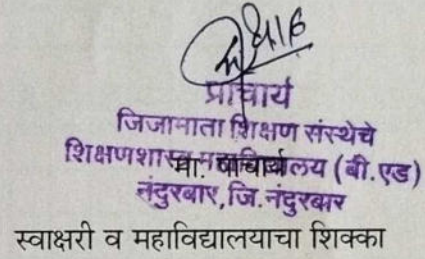 प्राचार्य
जिजामाता शिक्षण संस्थेचे
शिक्षणशास्त्र महाविद्यालय (बी.एड)
मा. प्राचार्य
नंदुरबार, जि. नंदुरबार
स्वाक्षरी व महाविद्यालयाचा शिक्का